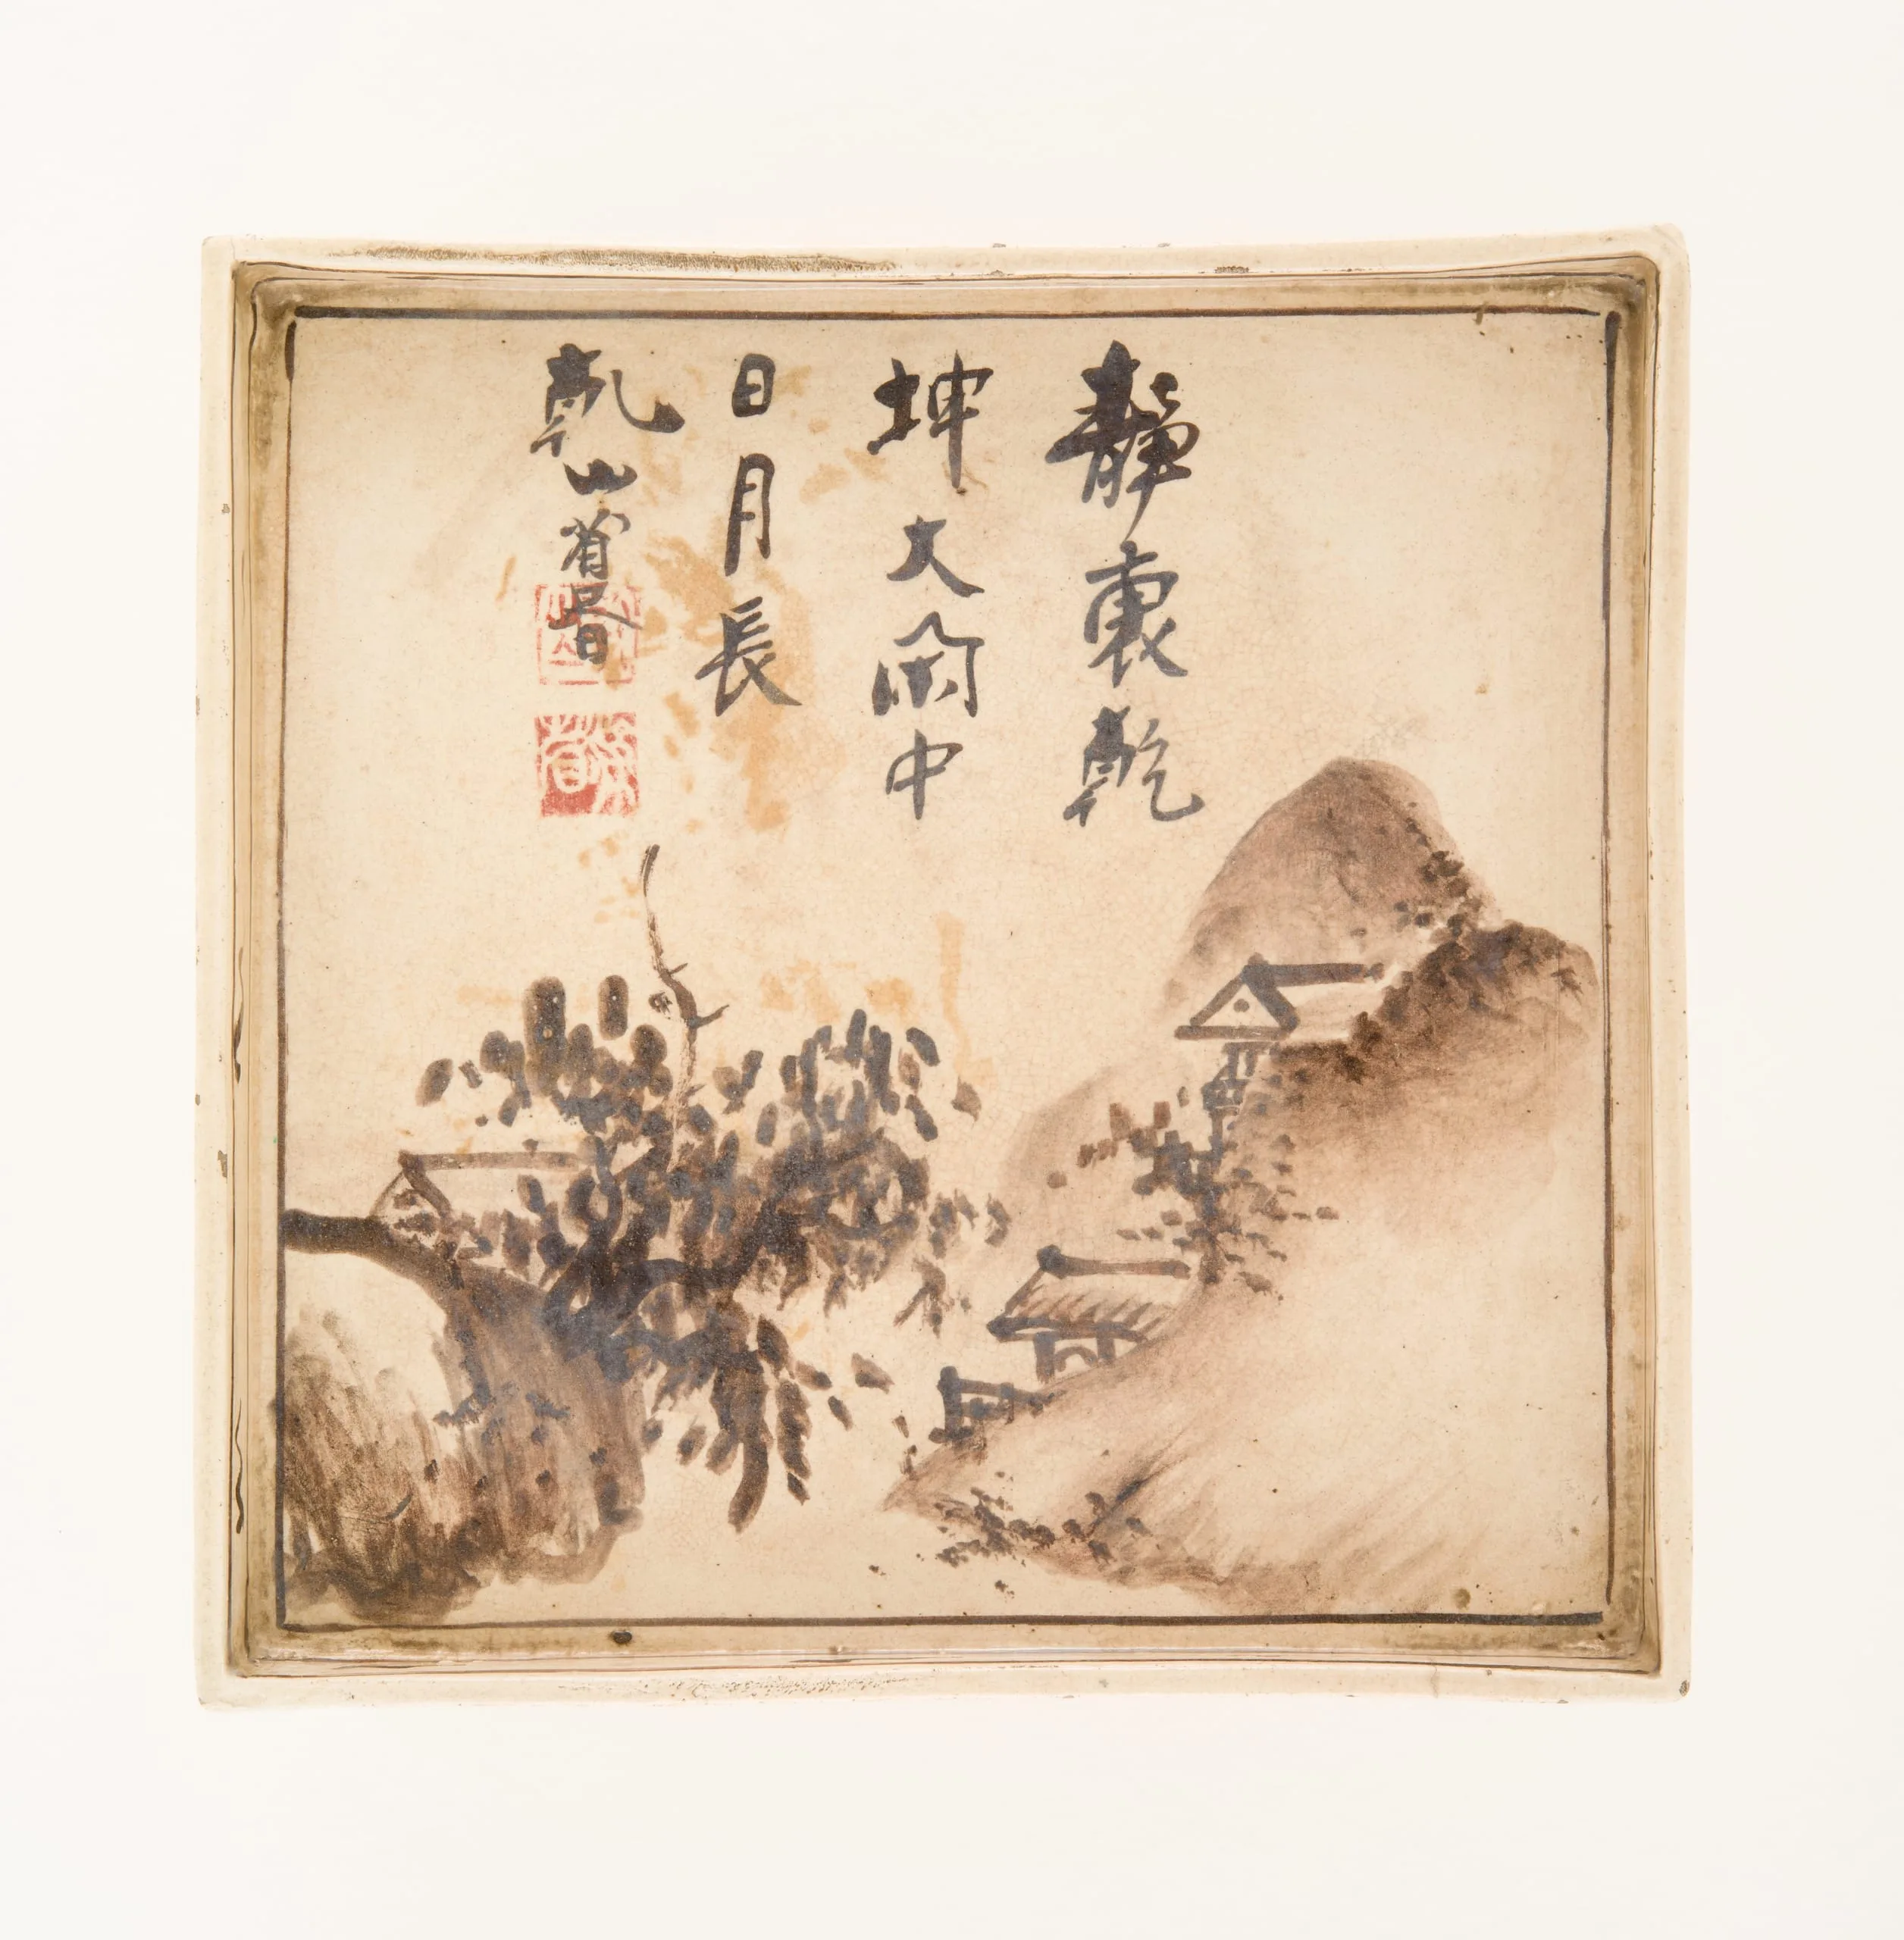 靜裏乾
坤大閑中
日月長
乾山省書
深省